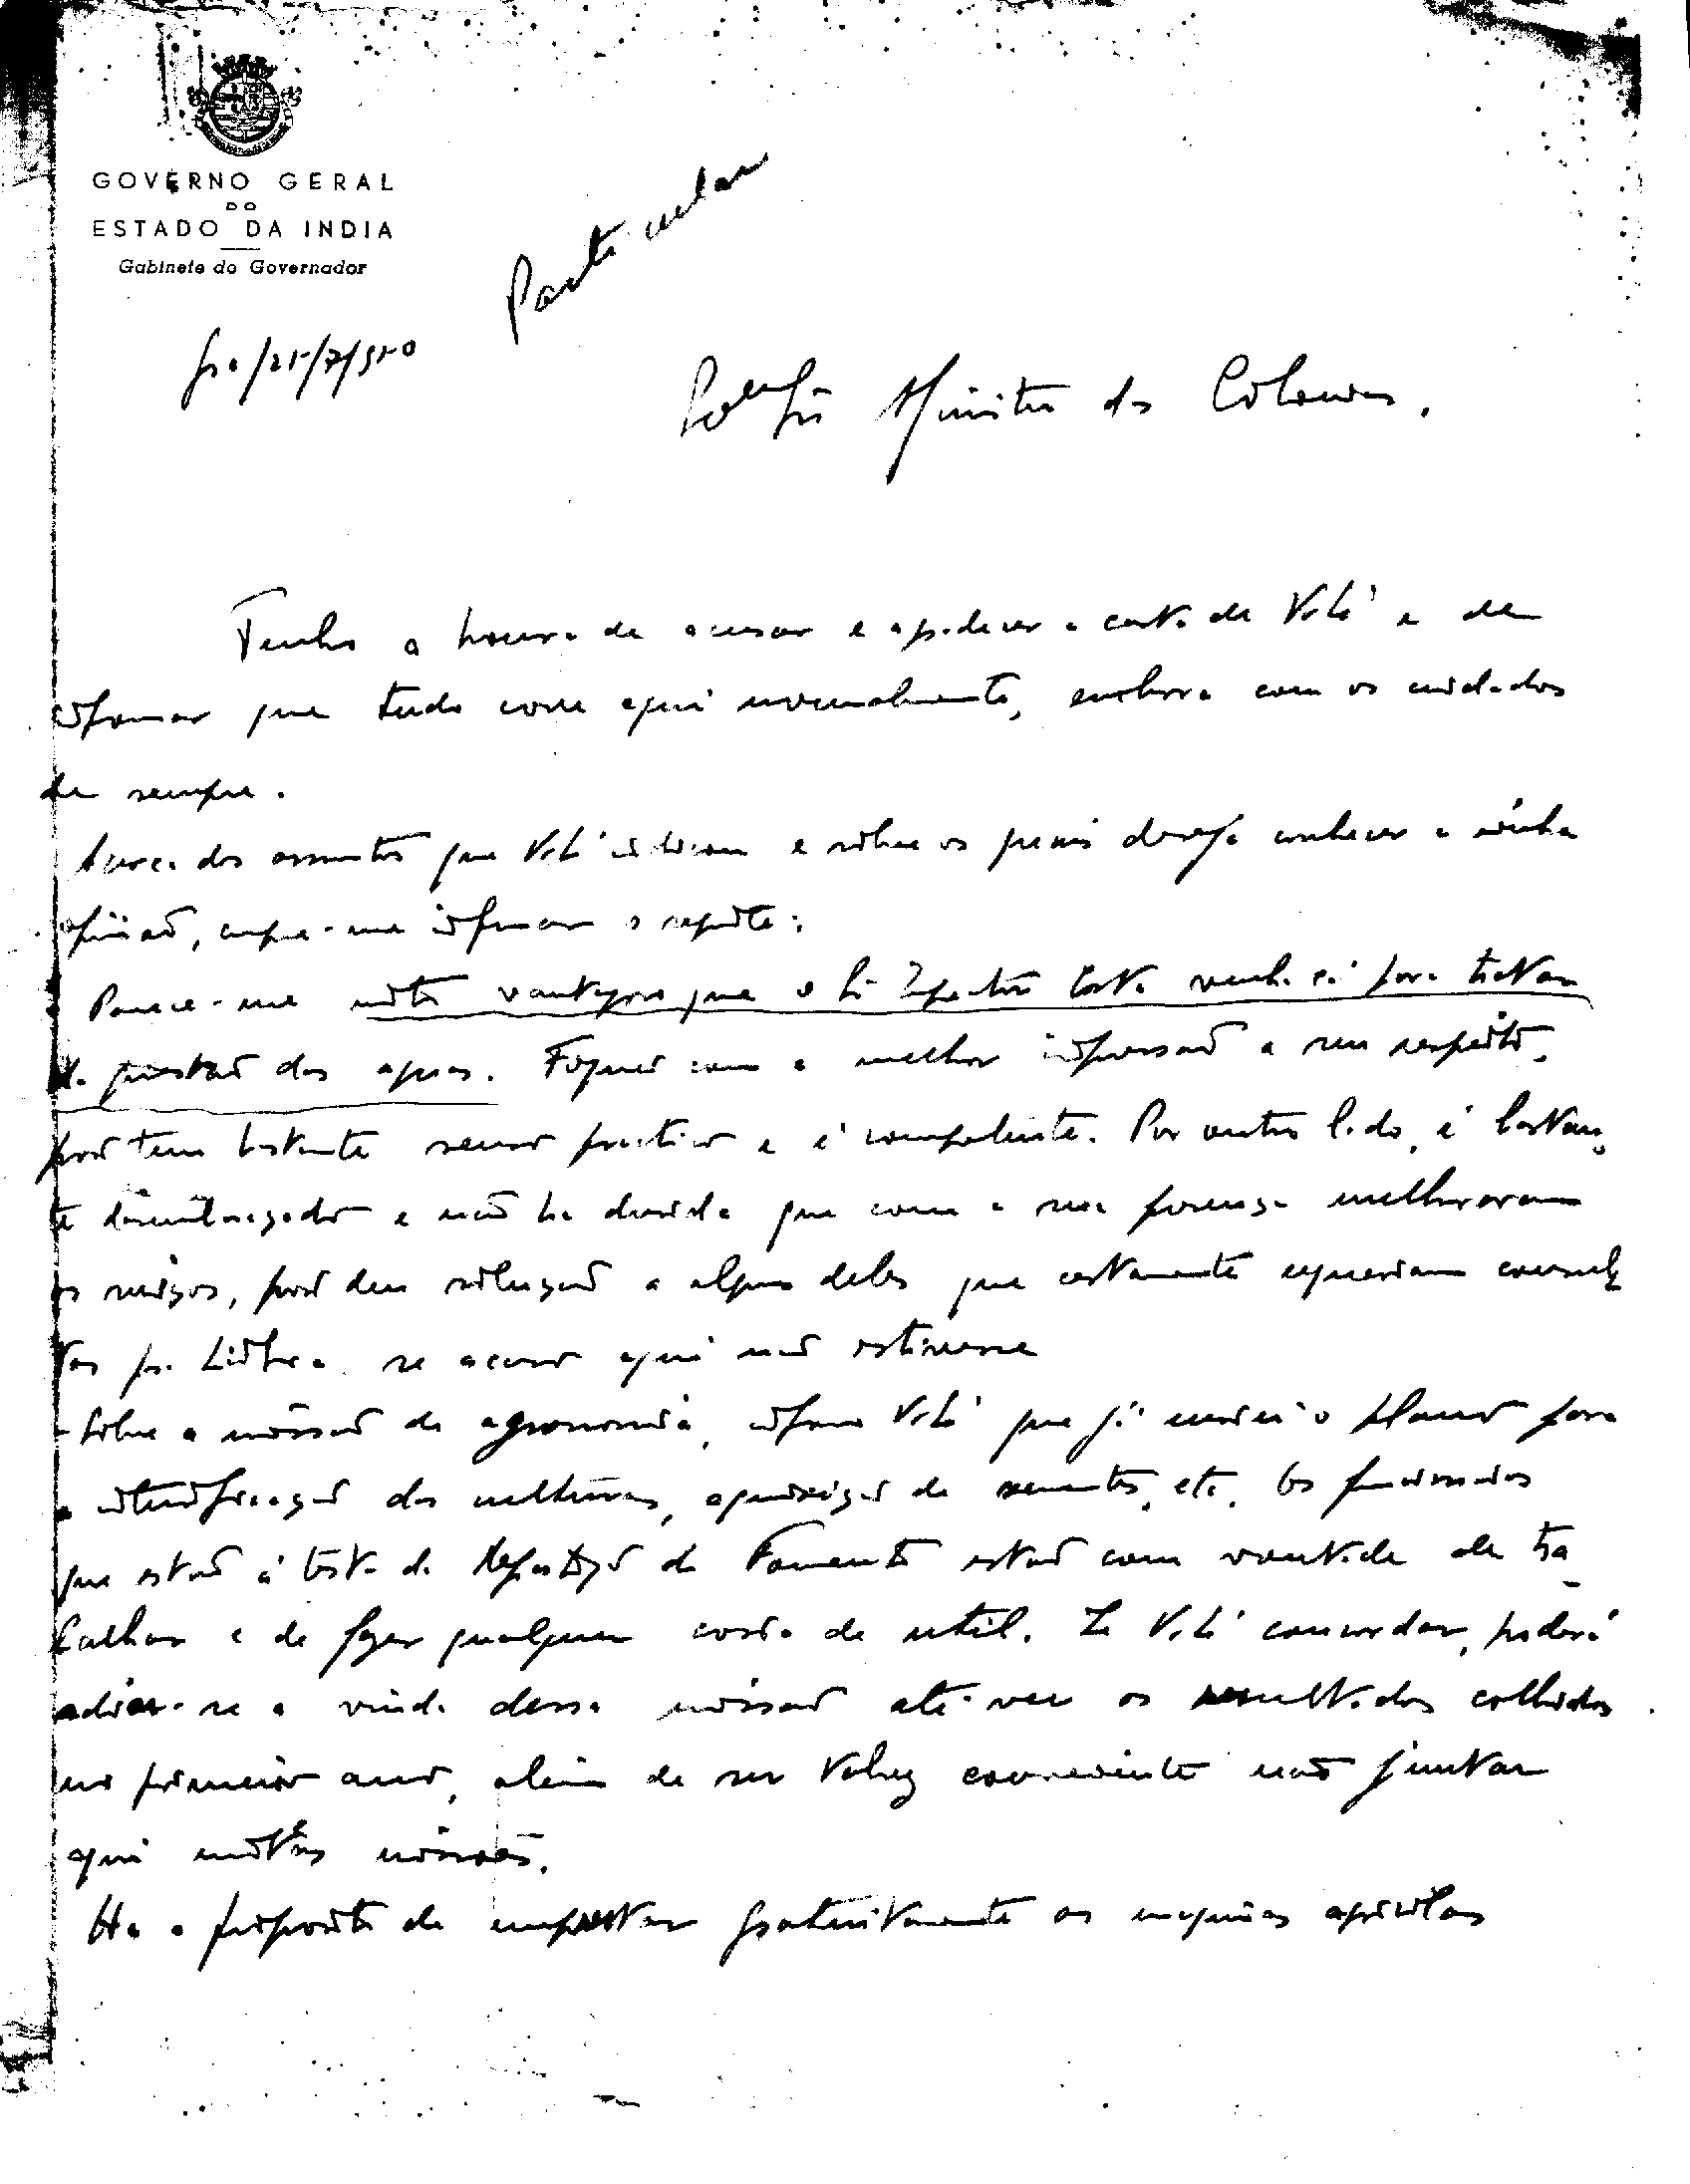 GOVERNO GERAL
DO
ESTADO DA INDIA
Gabinete do Governador
Particular
Goa/25/7/950
Ministro das Colonias.
Tenho a honra de acusar e agradecer a carta de V. Exª e de
informar que tudo corre aqui normalmente, embora com os cuidados
de sempre.
Acerca dos assuntos que V. Exª e sobre os quais deseja conhecer a minha
opinião, cumpre-me informar o seguinte:
Parece-me muito vantajoso que o Sr Inspector Costa venha cá para tratar
da questão das aguas. Fiquei com a melhor impressão a seu respeito,
pois tem bastante senso pratico e é competente. Por outro lado, é bastan
te desembaraçado e não ha duvida que com a sua presença melhoraram
os serviços, pois deu solução a alguns deles que certamente requeriam consul
tas pa Lisboa se acaso aqui não estivesse
- Sobre a missão de agronomia, informo V. Exª que já enviei o plano para
a intensificação das culturas, aquisição de sementes, etc. Os funcionarios
que estão á testa da Repartição do Fomento estão com vontade de tra
balhar e de fazer qualquer coisa de util. Se V. Exª concordar, poderá
adiar-se a vinda dessa missão até ver os resultados colhidos
no primeiro ano, alem de ser talvez conveniente não juntar
aqui muitas missões.
Ha o proposito de emprestar gratuitamente as maquinas agricolas